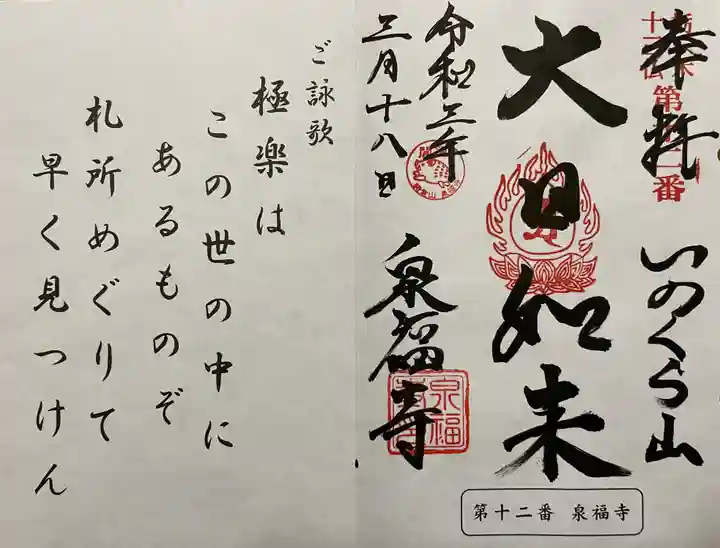 奉拝
いのくら山
大日如来
令和三年
三月十八日
泉福寺
第十二番 泉福寺
ご詠歌
極楽は
この世の中に
あるものぞ
札所めぐりて
早く見つけん